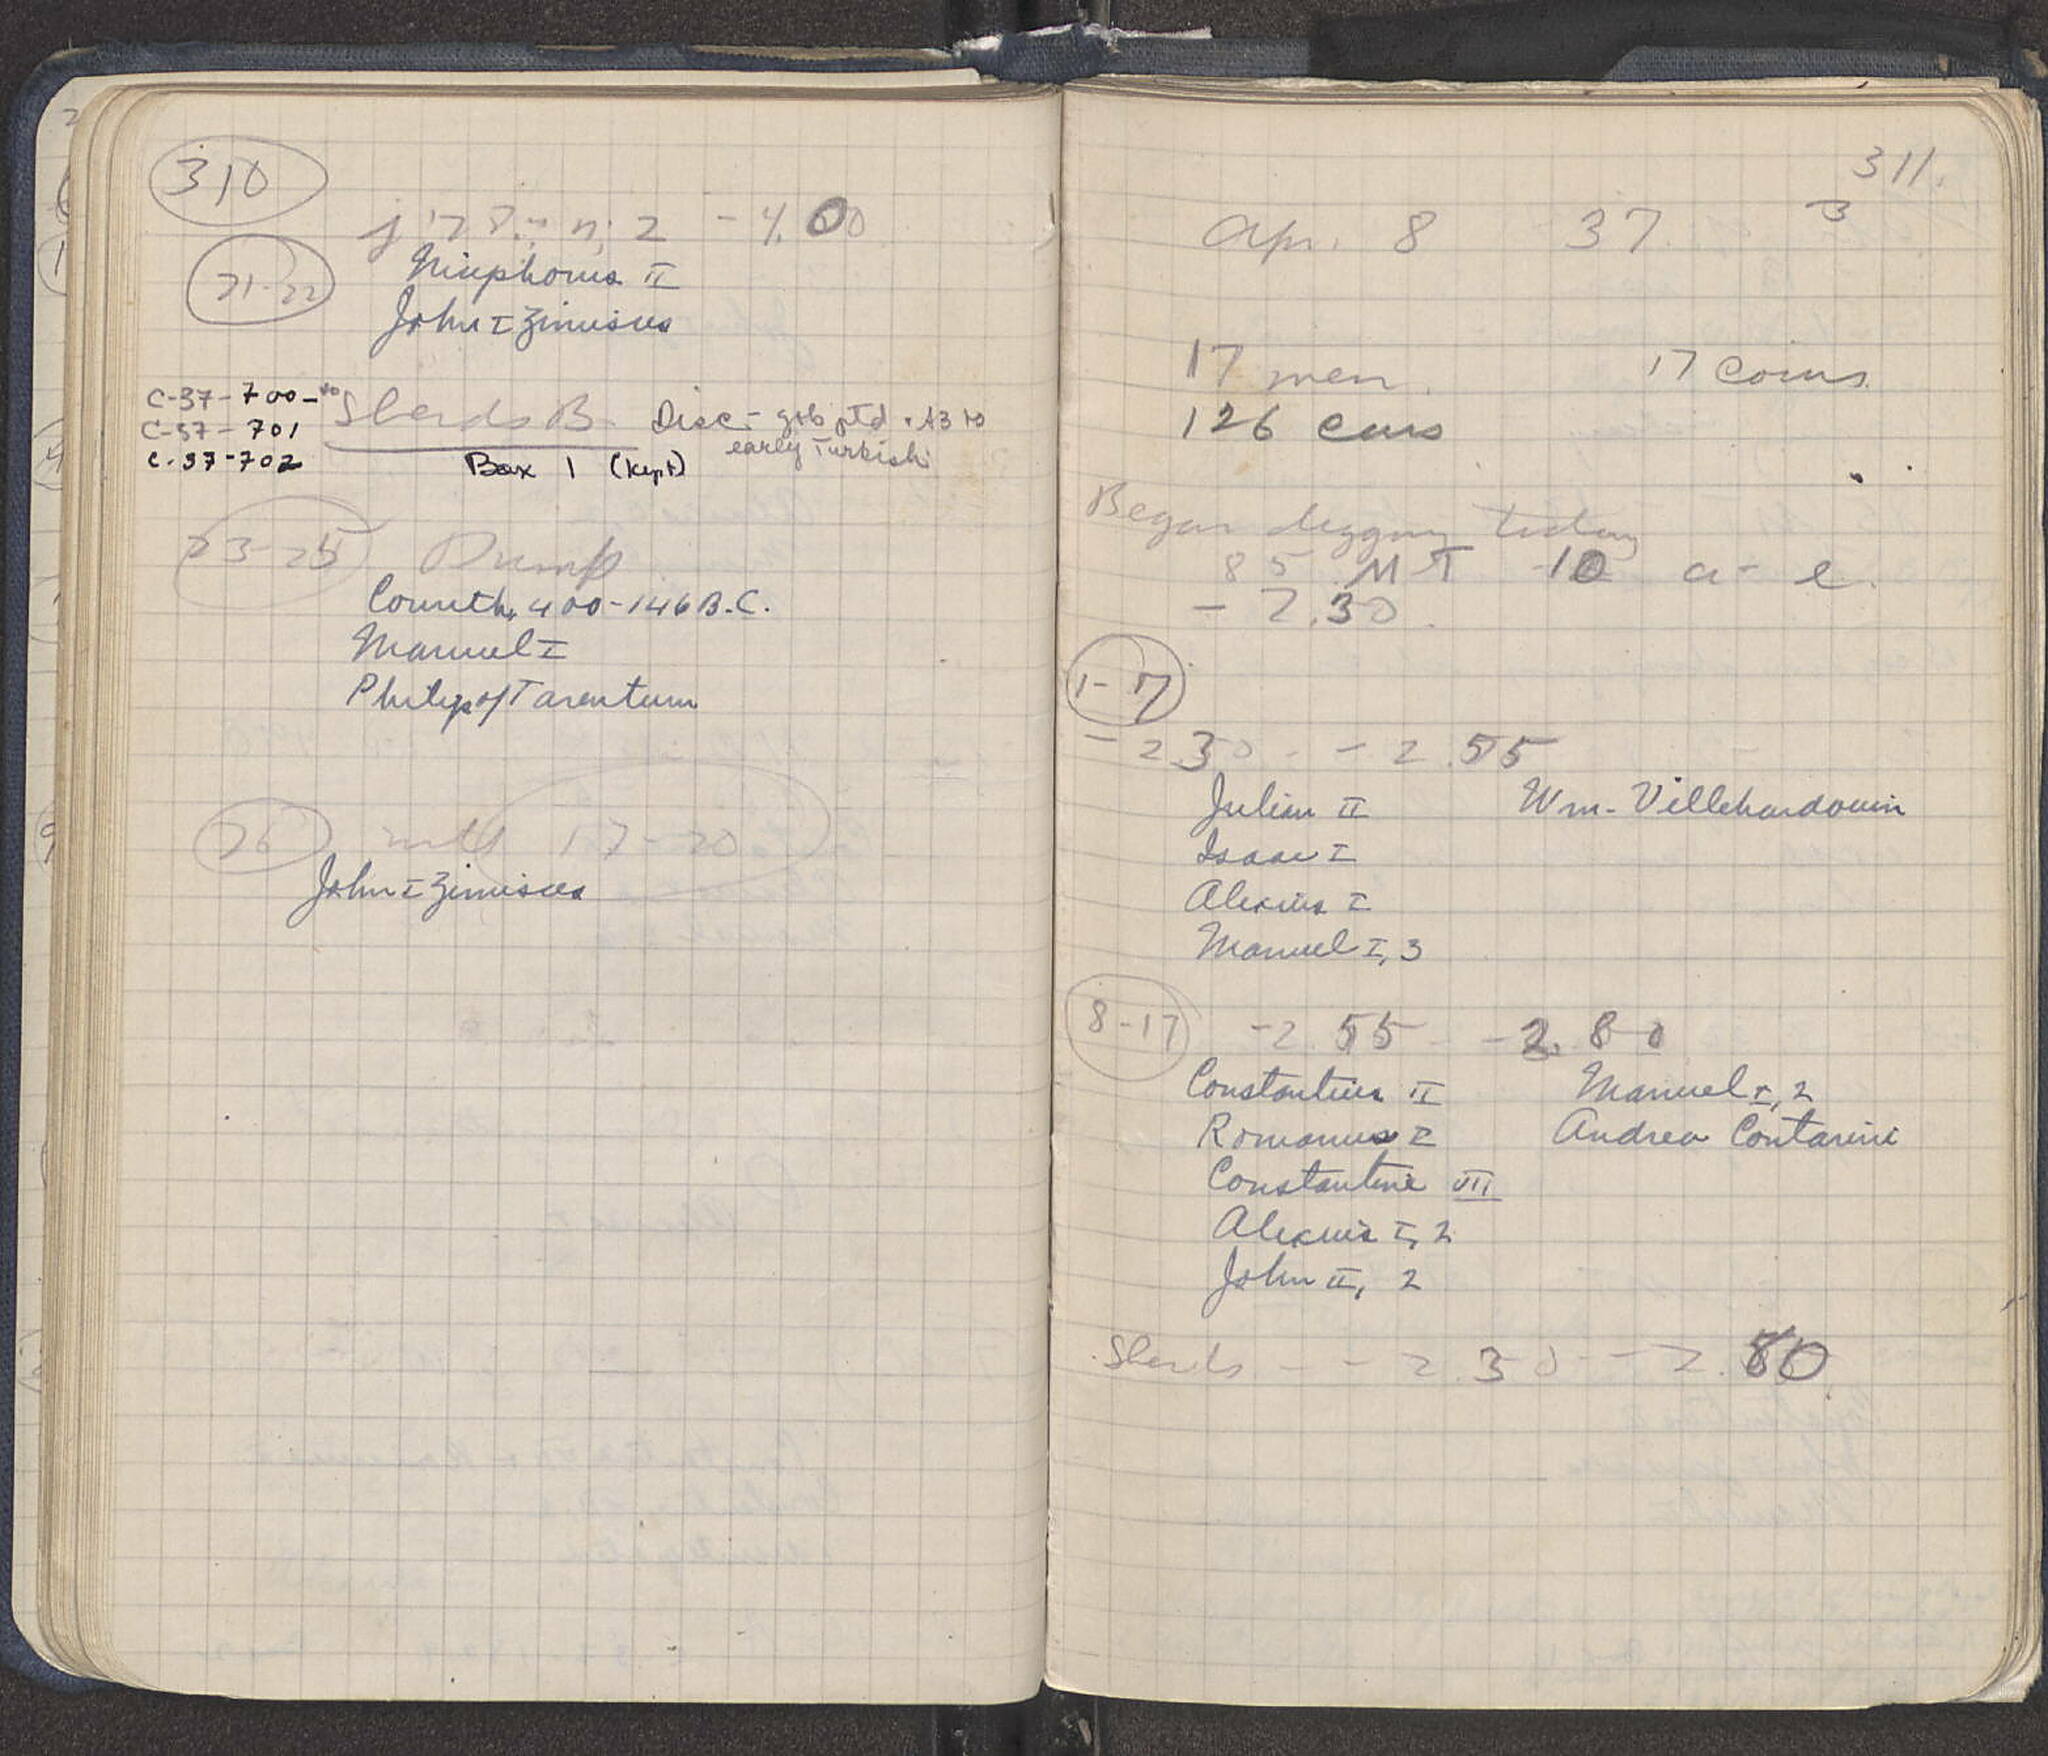 310
- 4.00
21-22
Nicephorus II
John I Zimisces
C-37-700-
C-37-701
C-37-702
Sherds B.
Disc - g+b ptd.
early Turkish
Box 1 (kept)
23-25 Dump
Corinth, 400-146 B.C.
Manuel I
Philip of Tarentum
26 17-20
John I Zimisces
311.
Apr. 8 37 3
17 men. 17 coins
126 cars
Began digging today
85 MT 10 a-e.
- 2.30.
1-17
- 2.30 - - 2.55
Julian II Wm. Villehardouin
Isaac I
Alexius I
Manuel I, 3
8-17 -2.55 - -2.80
Constantius II Manuel I, 2
Romanus I Andrea Contarini
Constantine VII
Alexius I, 2
John II, 2
Sherds - - 2.30 - - 2.80